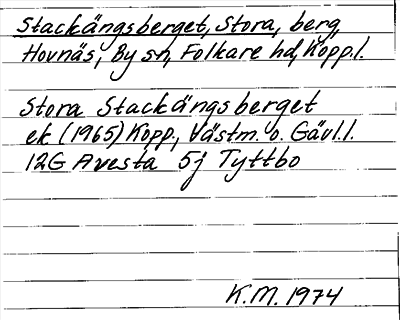 Stackängsberget, Stora, berg,
Hovnäs, By sn, Folkare hd, Kopp.l.
Stora Stackängsberget
ek (1965) Kopp., Västm. o. Gävl.l.
12G Avesta 5j Tyttbo
K.M. 1974